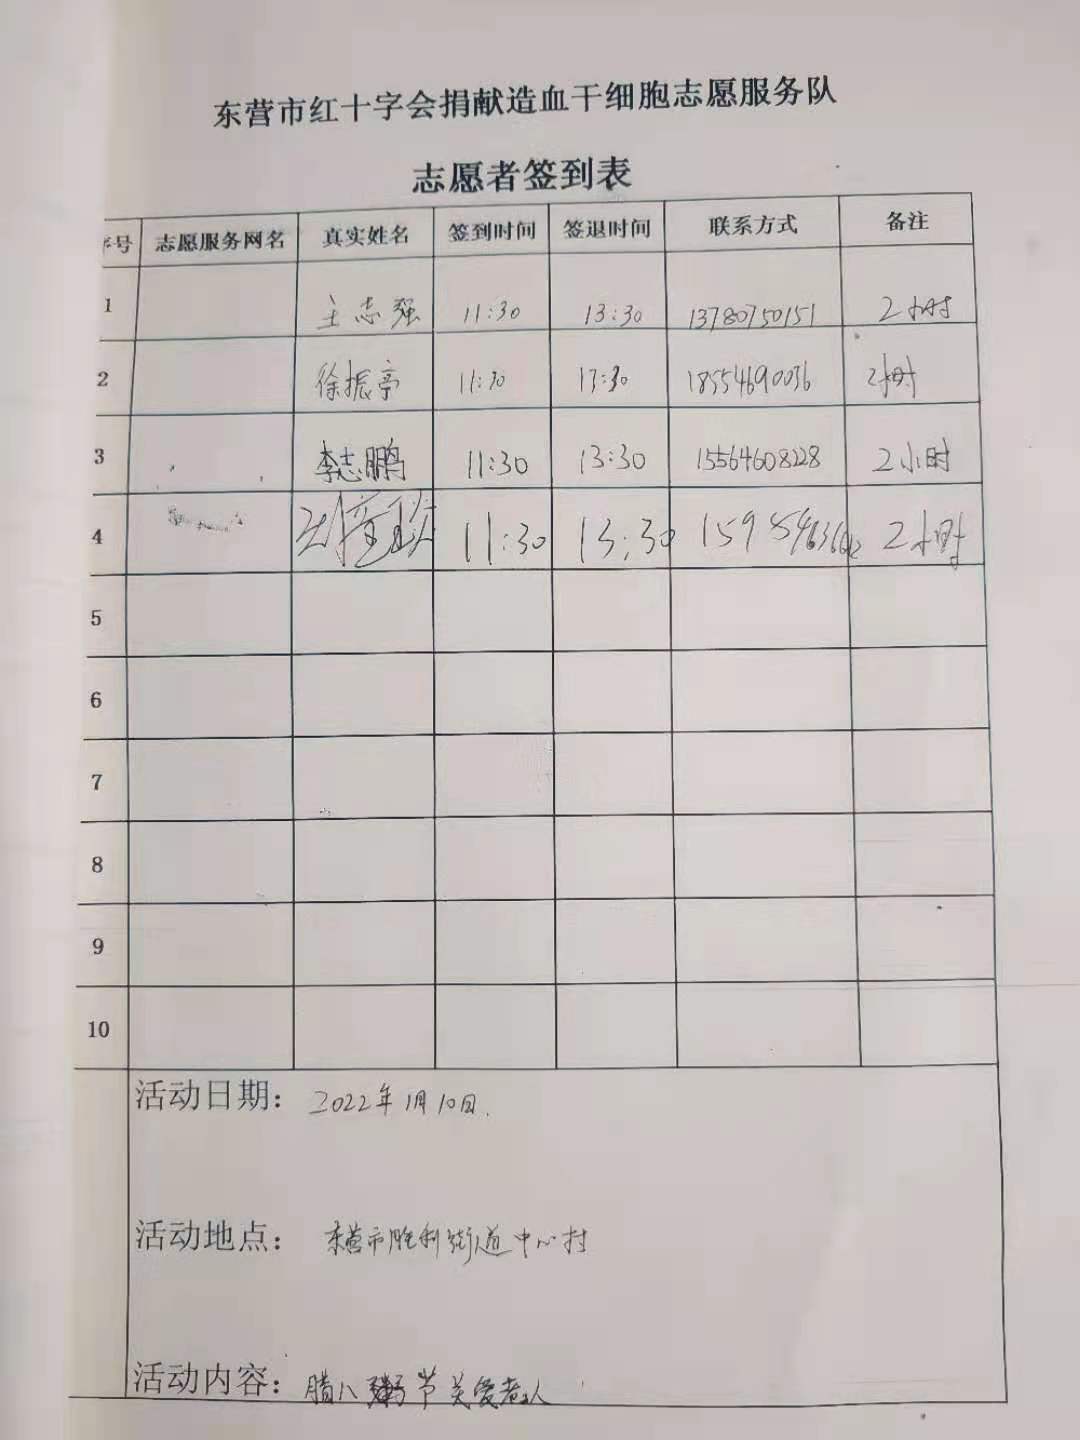 东营市红十字会捐献造血干细胞志愿服务队
志愿者签到表
序号 志愿服务网名 真实姓名 签到时间 签退时间 联系方式 备注
1 王志强 11:30 13:30 13780750151 2小时
2 徐振亭 11:30 13:30 18554690036 2小时
3 李志鹏 11:30 13:30 15564608228 2小时
4 11:30 13:30 2小时
5
6
7
8
9
10
活动日期: 2022年1月10日.
活动地点: 东营市胜利街道中心村
活动内容: 腊八粥节关爱老人